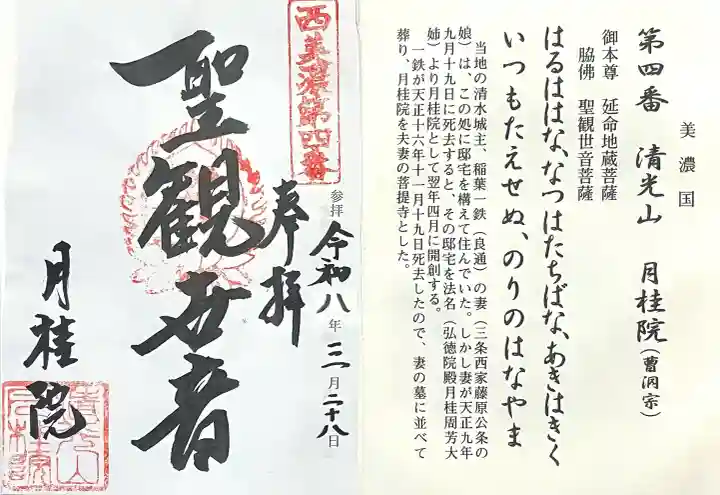 美濃国
第四番 清光山 月桂院(曹洞宗)
御本尊 延命地蔵菩薩
脇佛 聖観世音菩薩
はるははな、なつはたちばな、あきはきく
いつもたえせぬ、のりのはなやま
当地の清水城主、稲葉一鉄(良通)の妻(三条西家藤原公条の
娘)は、この処に邸宅を構えて住んでいた。しかし妻が天正九年
九月十九日に死去すると、その邸宅を法名(弘徳院殿月桂周芳大
姉)より月桂院として翌年四月に開創する。
一鉄が天正十六年十一月十九日死去したので、妻の墓に並べて
葬り、月桂院を夫妻の菩提寺とした。
西美濃第四番
参拝 令和八年 三月二十八日
奉拝
聖観世音
月桂院
清光山
月桂院